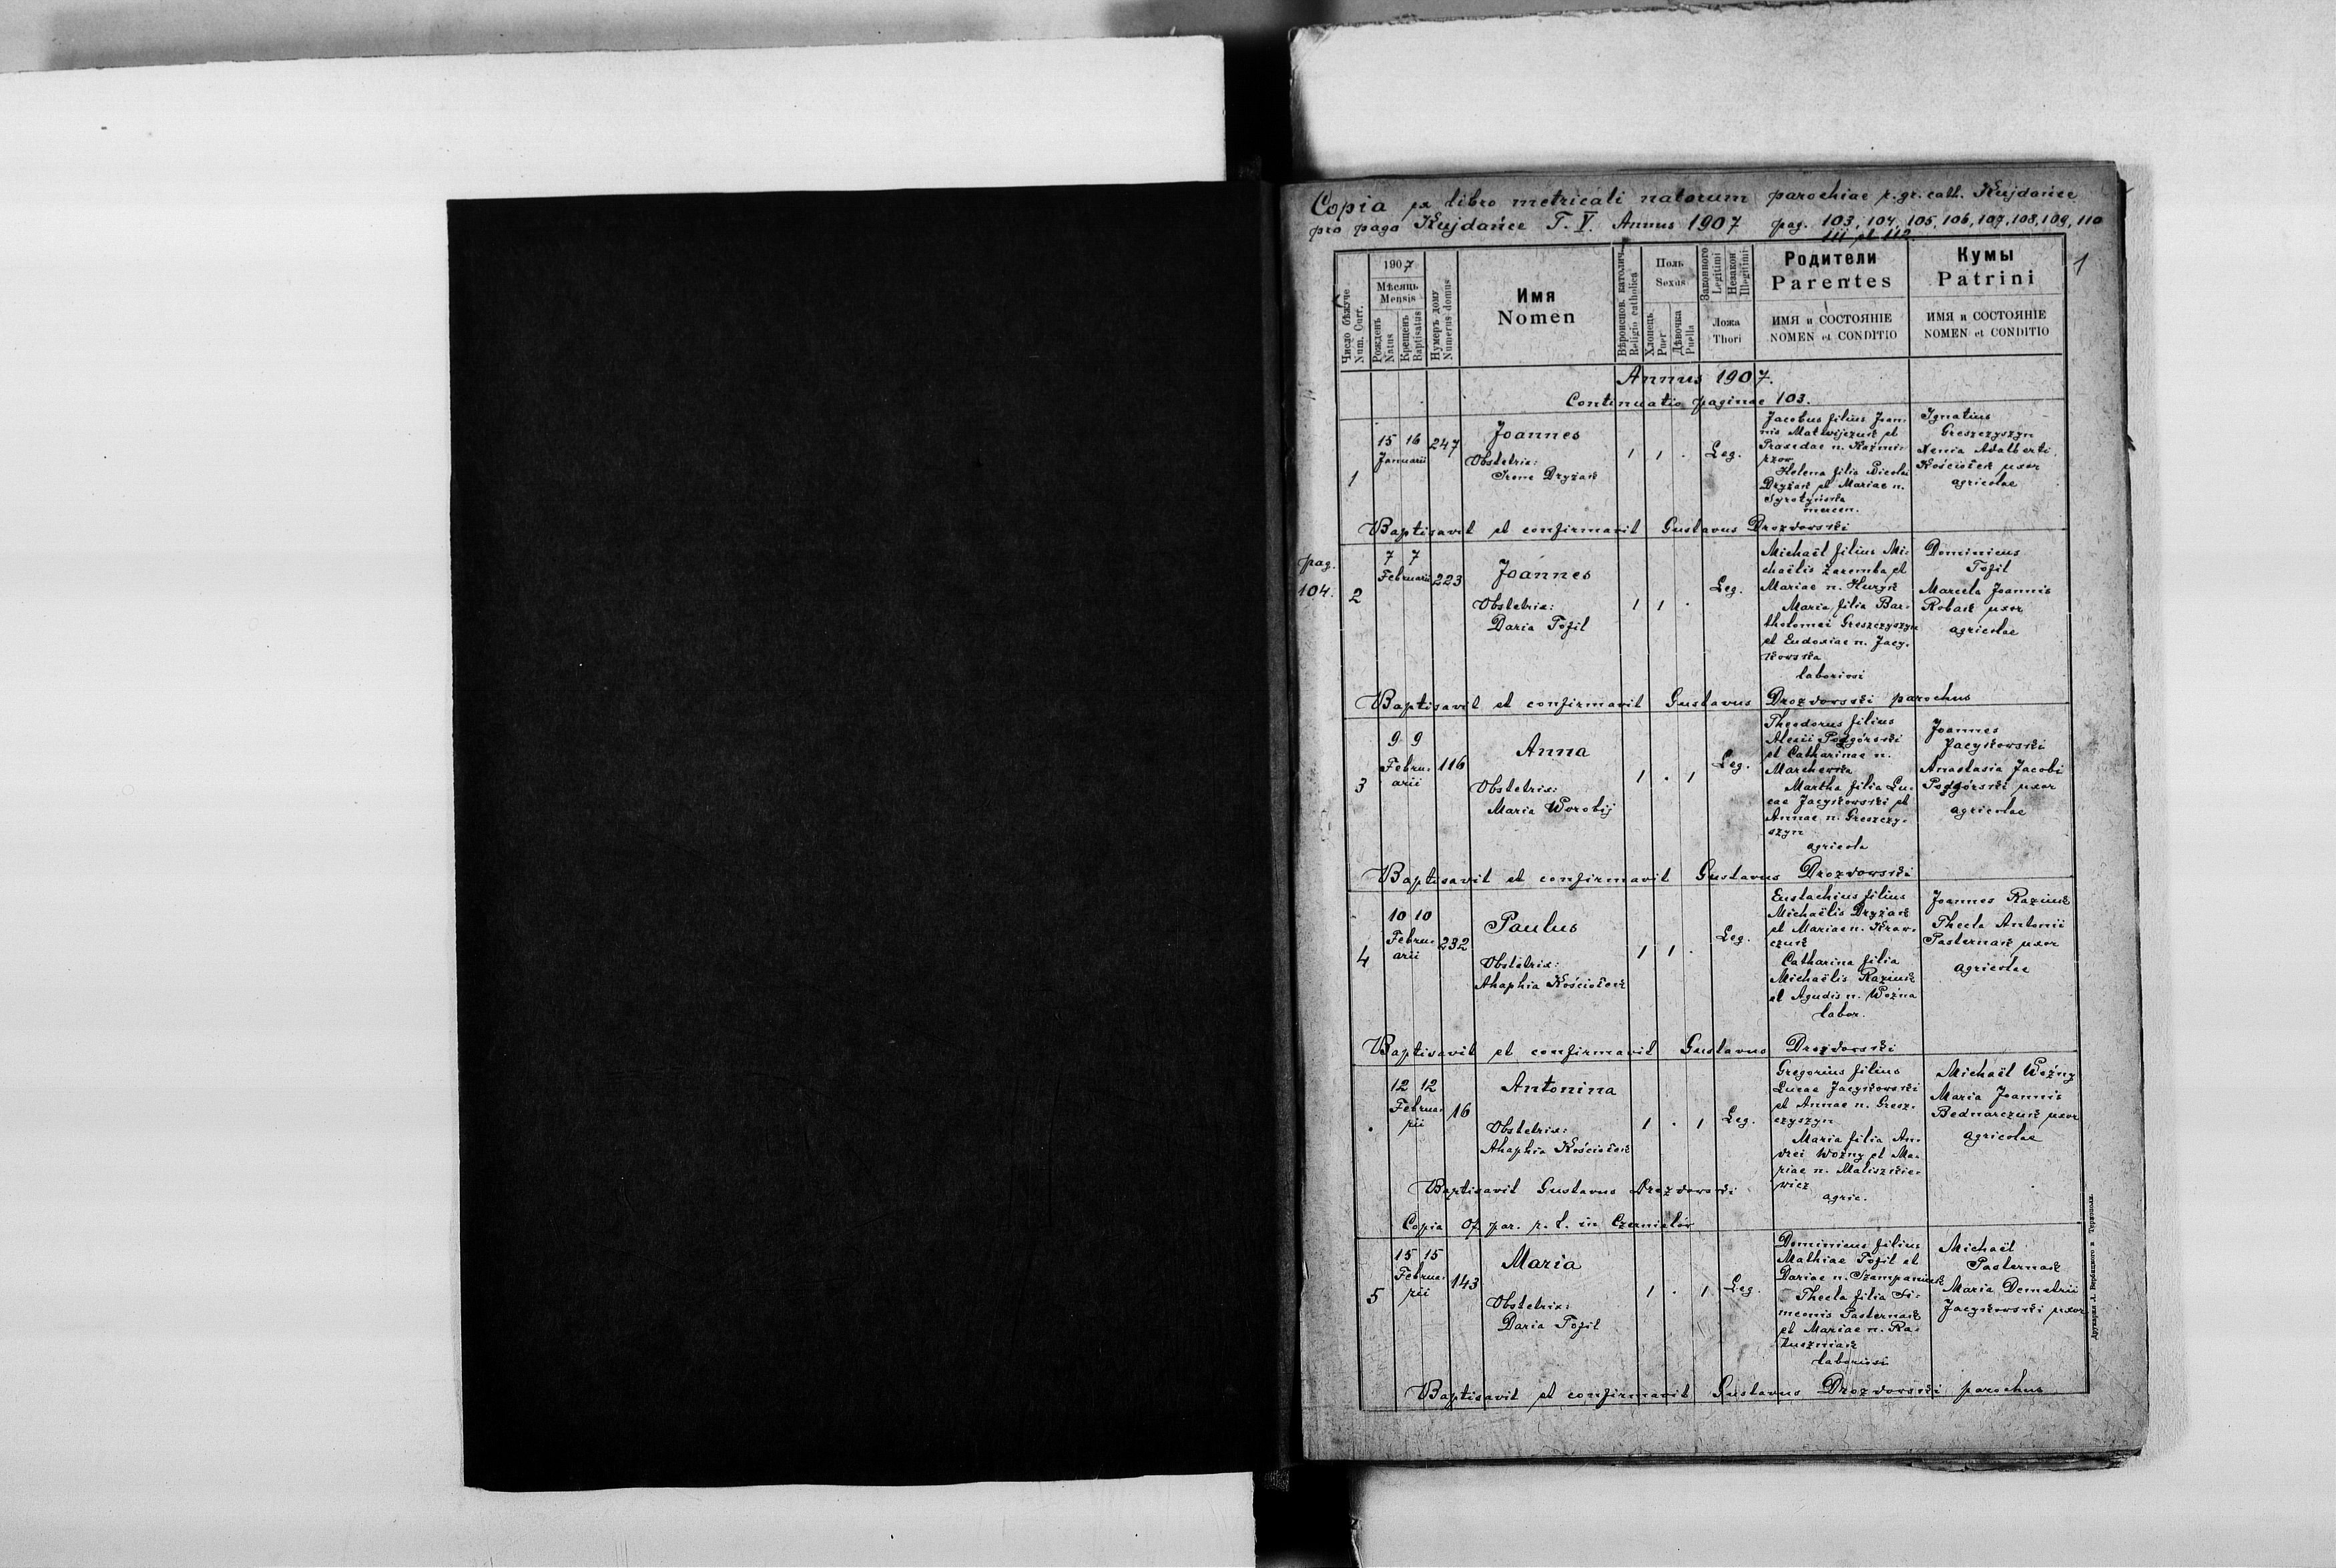 Copia ex libro metricali natorum parochiae r. gr. cath. Kujdańce
pro pago Kujdańce T. V. Annus 1907 pag. 103, 104, 105, 106, 107, 108, 109, 110
111 et 112.
1
Число бѣжуче
Num. Curr.
1907
Мѣсяць
Mensis
Рожденъ
Natus
Крещенъ
Baptisatus
Нумеръ дому
Numerus domus
Имя
Nomen
Вѣроисповѣд. католич.
Religio catholica
Полъ
Sexus
Хлопець
Puer
Дѣвочка
Puella
Законного
Legitimi
Незакон.
Illegitimi
Ложа
Thori
Родители
Parentes
ИМЯ и СОСТОЯНІЕ
NOMEN et CONDITIO
Кумы
Patrini
ИМЯ и СОСТОЯНІЕ
NOMEN et CONDITIO
Annus 1907.
Continuatio paginae 103.
1
15 16
Januarii
247
Joannes
Obstetrix:
Irene Dryżak
1 1 .
Leg.
Jacobus filius Joan-
nis Matwijczuk et
Praxedae n. Kaźmi-
rzow
Helena filia Nicolai
Dryżak et Mariae n.
Syrotyńska
mercen.
Ignatius
Greszczyszyn
Xenia Adalberti
Kościołek uxor
agricolae
Baptisavit et confirmavit Gustavus Drozdowski
pag.
104.
2
7 7
Februarii
223
Joannes
Obstetrix:
Daria Tofil
1 1 .
Leg.
Michaël filius Mi-
chaëlis Zaremba et
Mariae n. Huzyk
Maria filia Bar-
tholomei Greszczyszyn
et Eudoxiae n. Jacy-
kowska
laboriosi
Dominicus
Tofil
Marcela Joannis
Robak uxor
agricolae
Baptisavit et confirmavit Gustavus Drozdowski parochus
3
9 9
Febru-
arii
116
Anna
Obstetrix:
Maria Worobij
1 . 1
Leg.
Theodorus filius
Alexii Podgórski
et Catharinae n.
Marchewka
Martha filia Lu-
cae Jacykowski et
Annae n. Greszczy-
szyn
agricola
Joannes
Jacykowski
Anastasia Jacobi
Podgórski uxor
agricolae
Baptisavit et confirmavit Gustavus Drozdowski
4
10 10
Febru-
arii
232
Paulus
Obstetrix:
Ahaphia Kościołek
1 1 .
Leg.
Eustachius filius
Michaëlis Dryżak
et Mariae n. Kraw-
czuk
Catharina filia
Michaëlis Raziuk
et Agudis n. Woźna
labor.
Joannes Raziuk
Thecla Antonii
Pasternak uxor
agricolae
Baptisavit et confirmavit Gustavus Drozdowski
.
12 12
Februa-
rii
16
Antonina
Obstetrix:
Ahaphia Kościołek
1 . 1
Leg.
Gregorius filius
Lucae Jacykowski
et Annae n. Gresz-
czyszyn
Maria filia An-
drei Woźny et Ma-
riae n. Maliszkie-
wicz
agric.
Michaël Woźny
Maria Joannis
Bednarczuk uxor
agricolae
Baptisavit Gustavus Drozdowski
Copia Of. par. r. l. in Czernielów
5
15 15
Februa-
rii
143
Maria
Obstetrix:
Daria Tofil
1 . 1
Leg.
Dominicus filius
Mathiae Tofil et
Dariae n. Szampaniuk
Thecla filia Si-
meonis Pasternak
et Mariae n. Ra-
tuszniak
laboriosi
Michaël
Pasternak
Maria Demetrii
Jacykowski uxor
Baptisavit et confirmavit Gustavus Drozdowski parochus
Друкарня Л. Вербицкого в Тернополи.